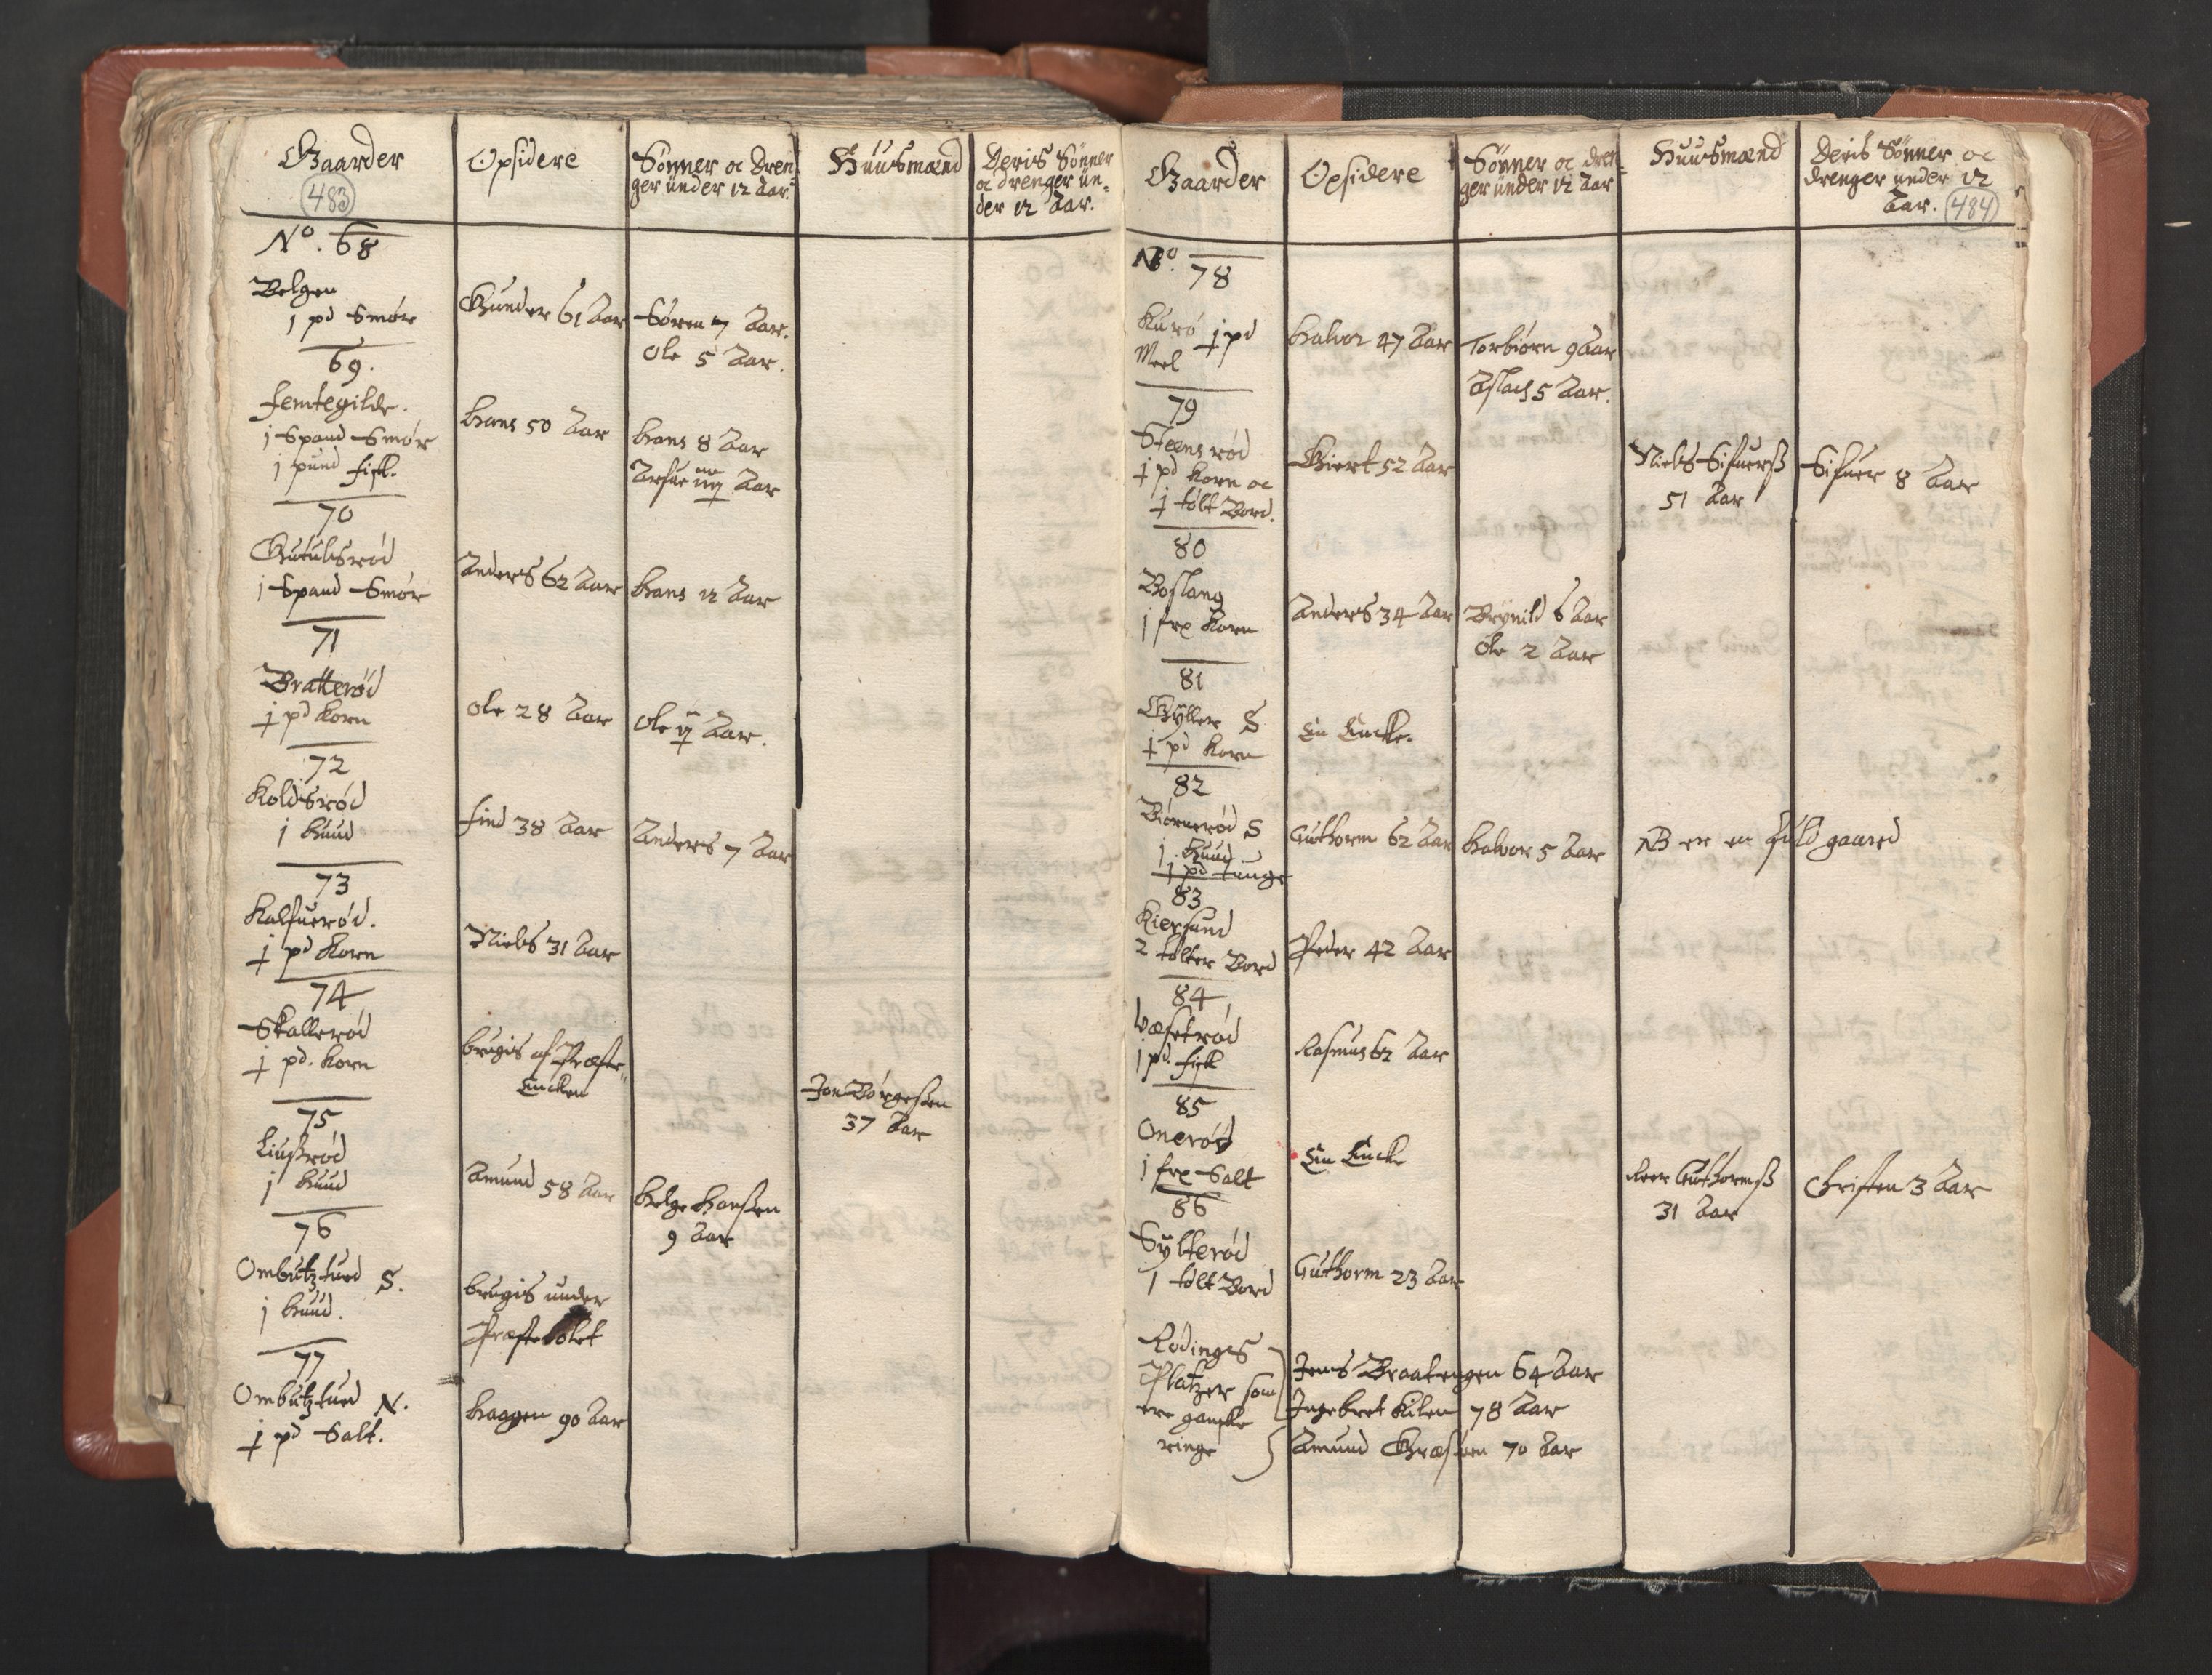 Gaarder
483
Opsidere
Sønner oc dren-
ger under 12 Aar.
Huusmænd
Deris Sønner
oc drenger un-
der 12 Aar.
No. 68
Belgen
j pd Smør
Gunder 61 Aar
Søren 7 Aar.
Ole 5 Aar.
69.
femtegilde.
j Spand Smør
j pund fisk.
Hans 50 Aar
Hans 8 Aar
Arfue iiij Aar
70
Gutulsrød
j Spand Smør
Anders 62 Aar
Hans 12 Aar
71
Bratterød
j pd Korn
Ole 28 Aar
Ole ij Aar.
72
Koldsrød
j Huud
find 38 Aar
Anders 7 Aar
73
Kalfuerød.
j pd Korn
Niels 31 Aar
74
Skallerød
j pd. Korn
brugis af Præste
Encken
Jon Børgesen
37 Aar
75
Liusrød
j Huud
Amund 58 Aar
Helge Hansen
9 Aar
76
Ombutztued S.
j Huud.
brugis under
Præstebolet
77
Ombutztued N.
j pd Salt.
Haagen 90 Aar
Gaarder
Opsidere
Sønner oc dren-
ger under 12 Aar
Huusmænd
Deris Sønner oc
drenger under 12
Aar. 484
No. 78
Kurø j pd
Meel
Halvor 47 Aar
Torbiørn 9 Aar
Aslach 5 Aar.
79
Steensrød
j pd Korn oc
j tolt Bord.
Giert 52 Aar
Niels Sifuerß
51 Aar
Sifuer 8 Aar
80
Boslang
j frp Korn
Anders 34 Aar
Brynild 6 Aar
Ole 2 Aar
81
Gyller S
j pd Korn
En Encke.
82
Biørnerød S
j Huud
1 pd tunge
Guthorm 62 Aar
Halvor 5 Aar
NB er en fuld gaard
83
Kiersund
2 tolter Bord
Peder 42 Aar
84
Wæsetrød
1 pd. fisk
Rasmus 62 Aar
85
Onerød
j frp Salt
En Encke
Roer Guthormß
31 Aar
Christen 3 Aar
86
Sylterød
1 tolt Bord
Guthorm 23 Aar
Rødinges
Platzer som
ere ganske
ringe
Jens Braatengen 64 Aar
Ingebret Kilen 78 Aar
Amund Græsøen 70 Aar